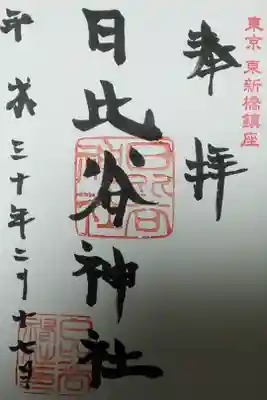 東京 東新橋鎮座
奉拝
日比谷神社
平成三十年二月十七日